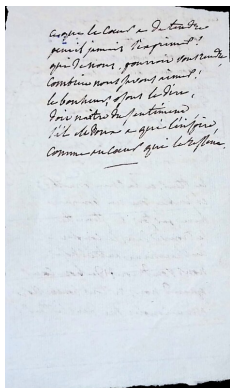 ce que le Cœur a de tendre
peut jamais s'exprimer!
que de nous, pouvoir vous rendre
Combien nous savons aimer!
le bonheur, osons le dire,
doit naître du sentiment
s'il est doux a qui l'inspire
Comme au Cœur qui le ressent.